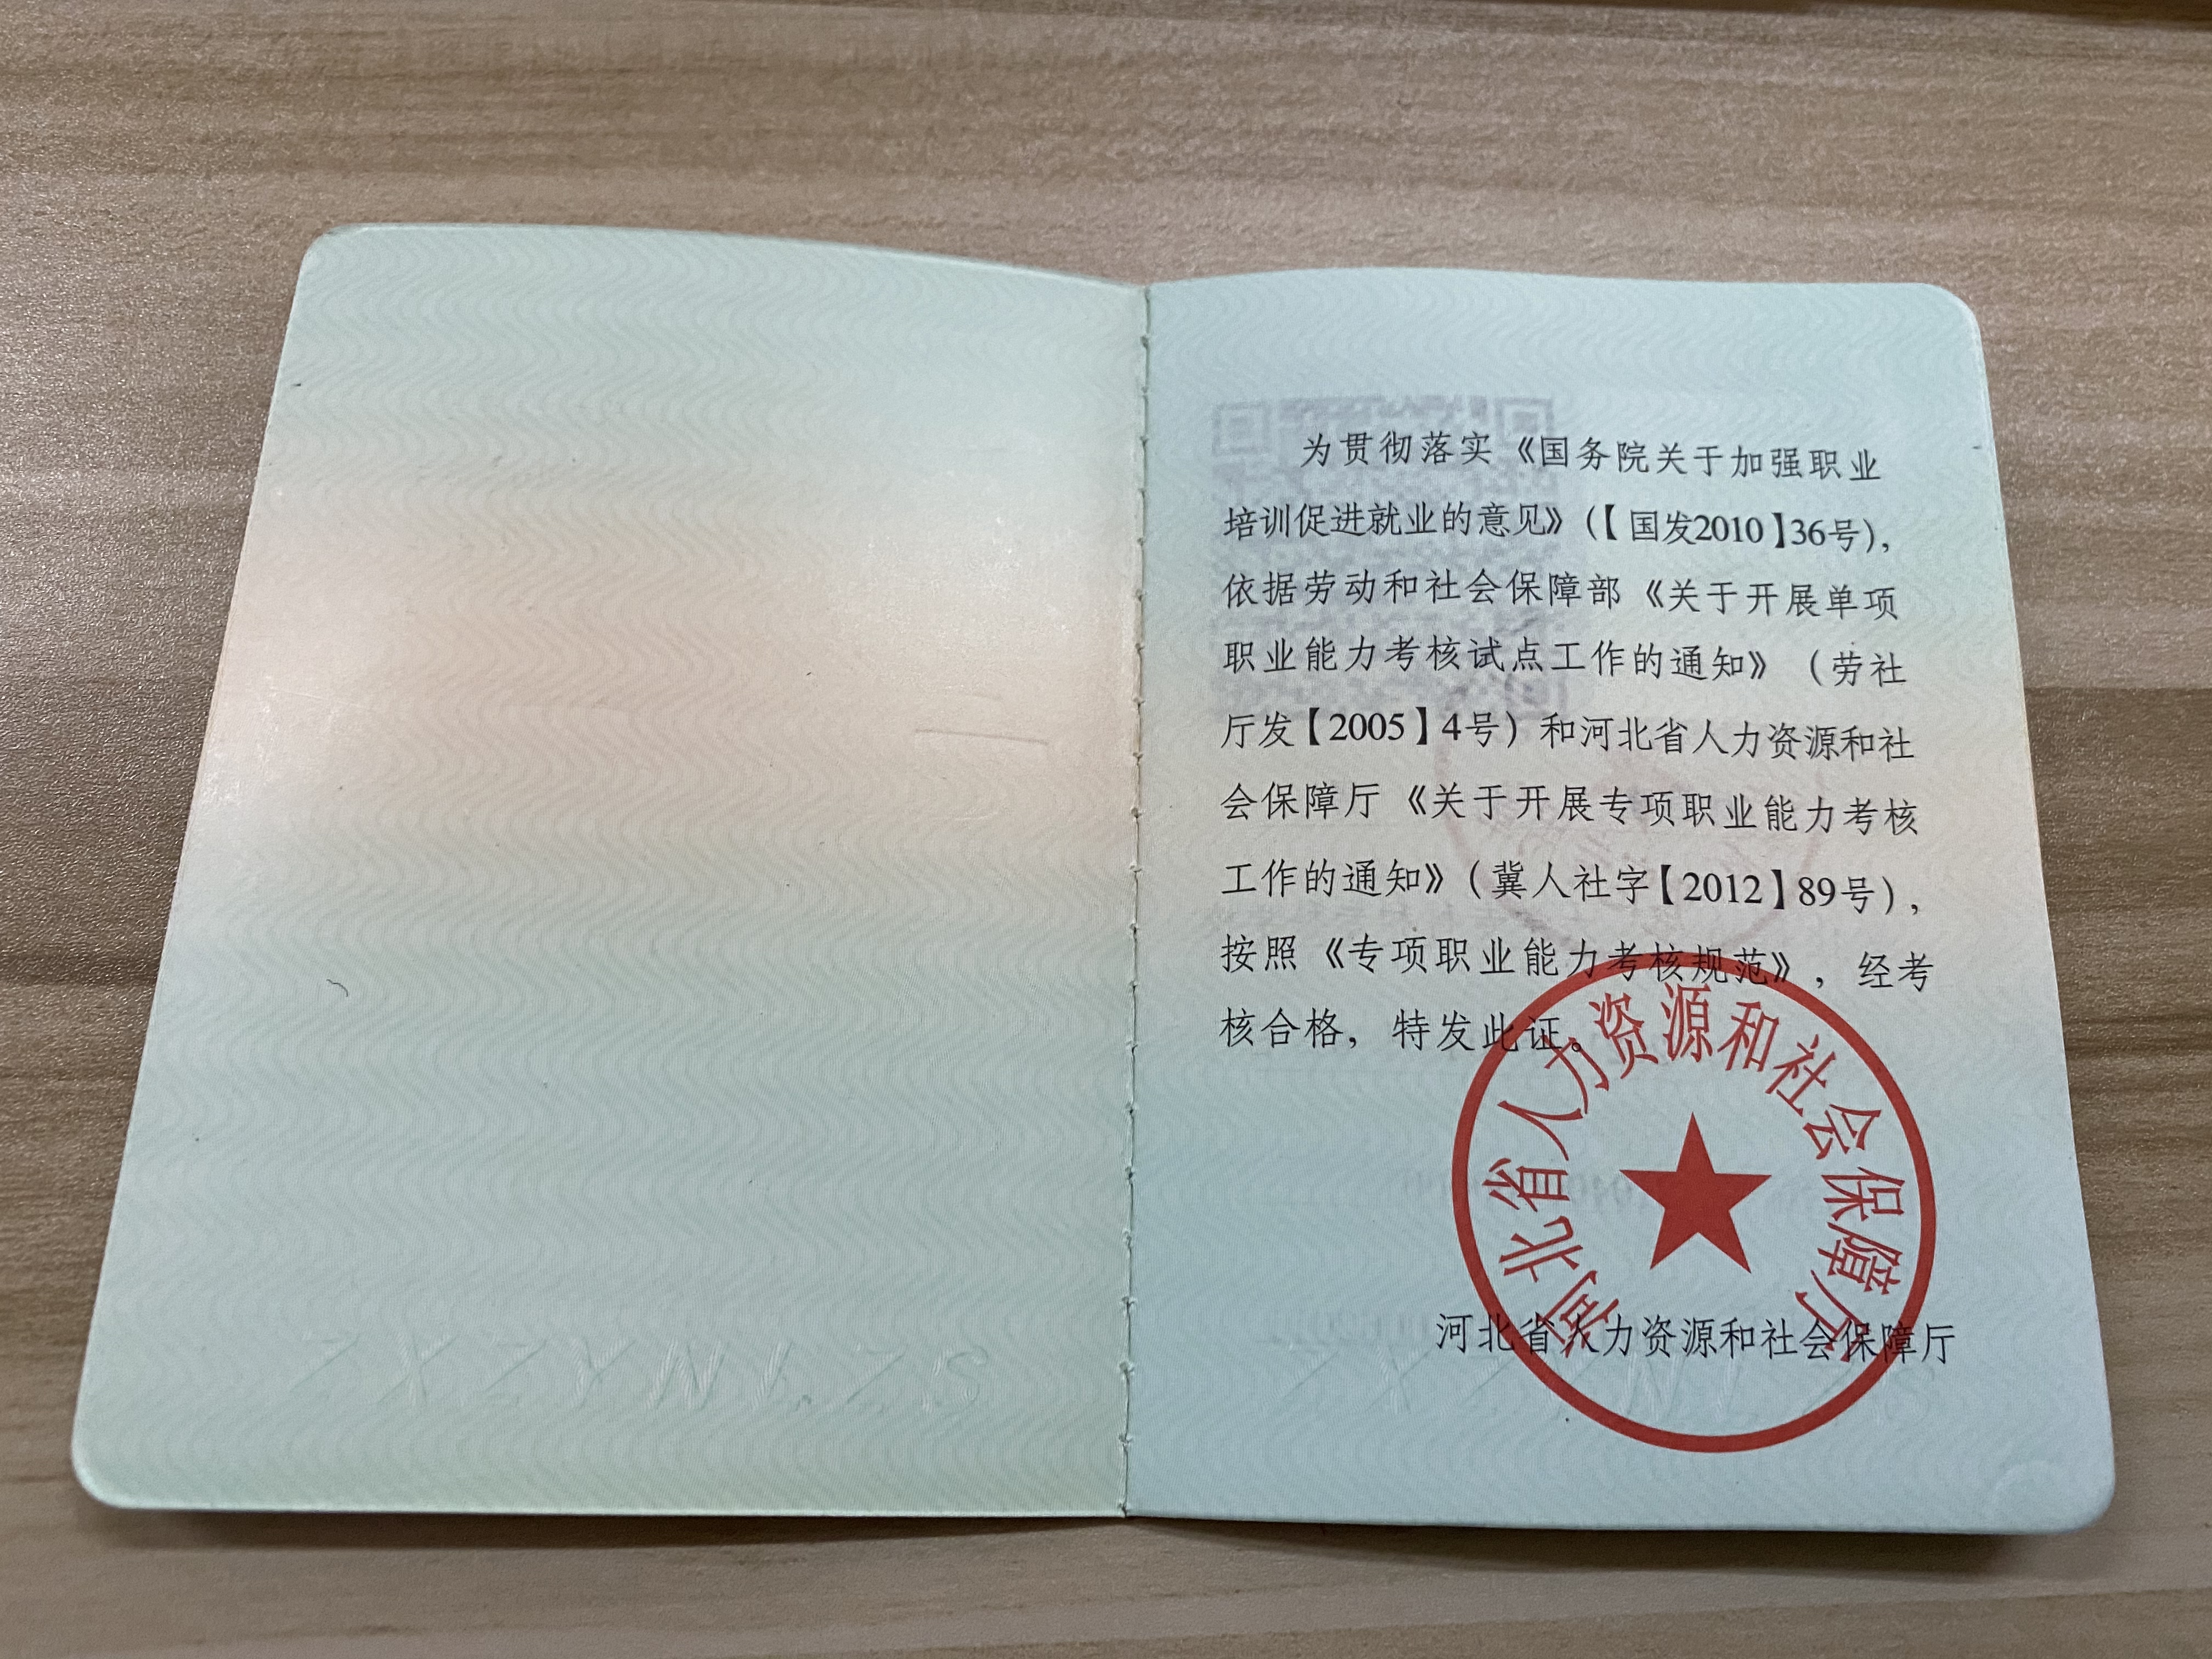 为贯彻落实《国务院关于加强职业
培训促进就业的意见》(【国发2010】36号),
依据劳动和社会保障部《关于开展单项
职业能力考核试点工作的通知》（劳社
厅发【2005】4号）和河北省人力资源和社
会保障厅《关于开展专项职业能力考核
工作的通知》（冀人社字【2012】89号），
按照《专项职业能力考核规范》，经考
核合格，特发此证。
河北省人力资源和社会保障厅
河北省人力资源和社会保障厅